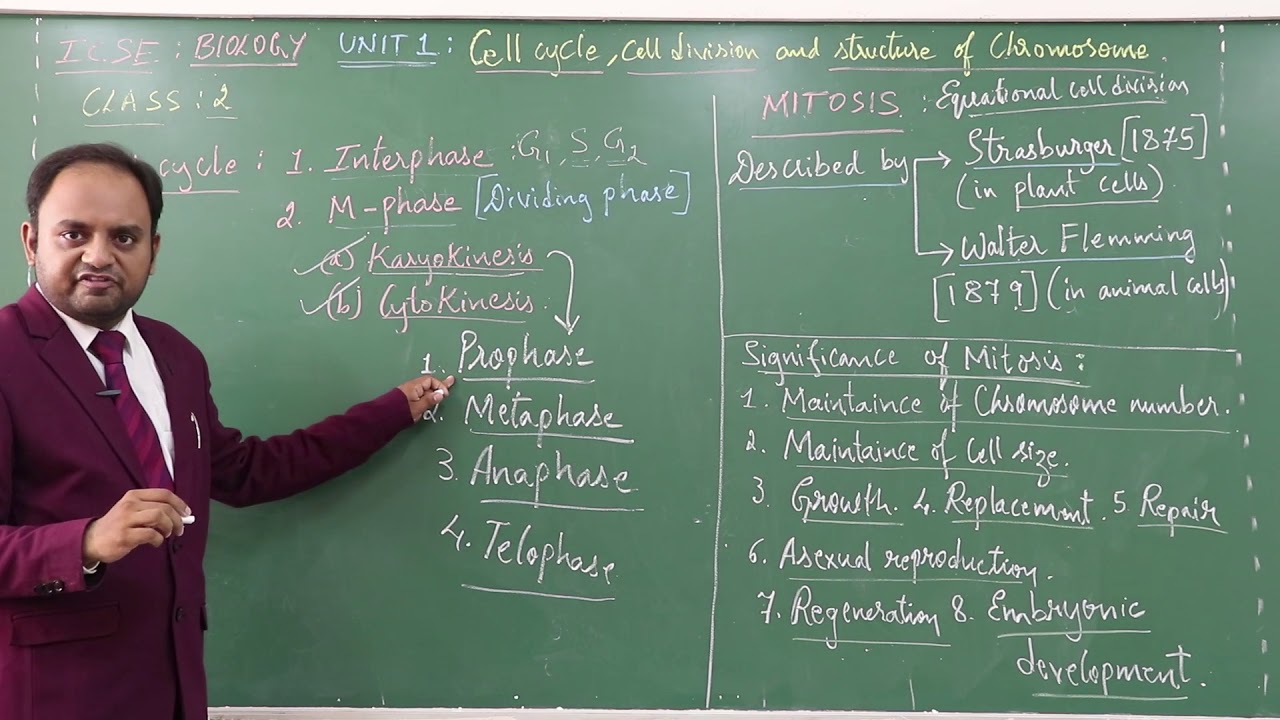 ICSE : BIOLOGY UNIT 1 : Cell cycle, Cell division and structure of Chromosome.
CLASS : 2
cycle : 1. Interphase : G1, S, G2
2. M-phase [Dividing phase]
(a) Karyokinesis
(b) Cytokinesis.
1. Prophase
2. Metaphase
3. Anaphase
4. Telophase
MITOSIS : Equational cell division
Described by
Strasburger [1875]
(in plant cells)
Walter Flemming
[1879] (in animal cells)
Significance of Mitosis :
1. Maintaince of Chromosome number.
2. Maintaince of Cell size.
3. Growth. 4. Replacement. 5. Repair
6. Asexual reproduction.
7. Regeneration 8. Embryonic
development.